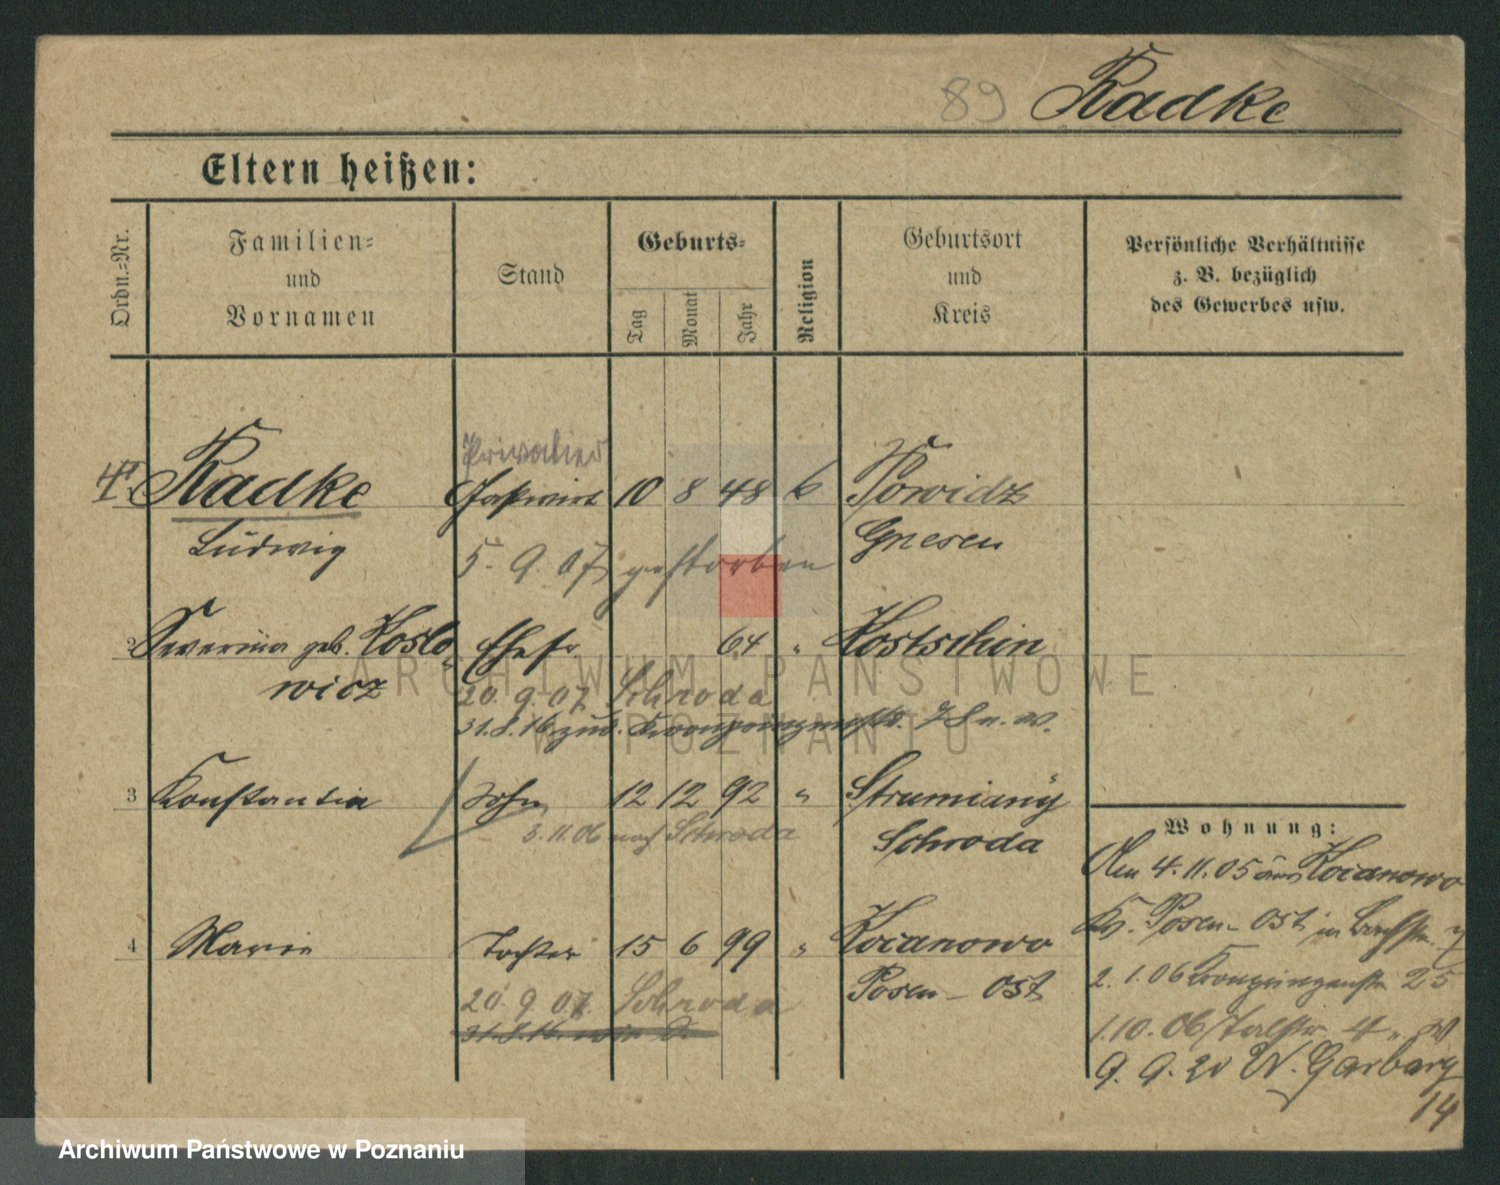 89 Radke
Eltern heißen:
Ordn.=Nr.
Familien=
und
Vornamen
Stand
Geburts=
Tag
Monat
Jahr
Religion
Geburtsort
und
Kreis
Persönliche Verhältnisse
z. B. bezüglich
des Gewerbes usw.
Privatier
Radke Gastwirt 10 8 48 k Powidz
Ludwig Gnesen
5. 9. 07 gestorben
2 Severina geb. Koslo Ehefr. 64 " Kostschin
wicz
20. 9. 07. Schroda
31.8.16 zur. Kronprinzenstr.
3 Konstantin Sohn 12 12 92 " Strumiany
3.11.06 nach Schroda
Schroda
4 Marie Tochter 15 6 99 " Kocanowo
Posen-Ost
20. 9. 07. Schroda
31.8.16.
Wohnung:
Den 4.11.05 aus Kocanowo
Kr. Posen-Ost in Bachstr. 7
2.1.06 Kronprinzenstr. 25
1.10.06 Talstr. 4
9. 9. 20 W. Garbary
14
ARCHIWUM PAŃSTWOWE
W POZNANIU
Archiwum Państwowe w Poznaniu